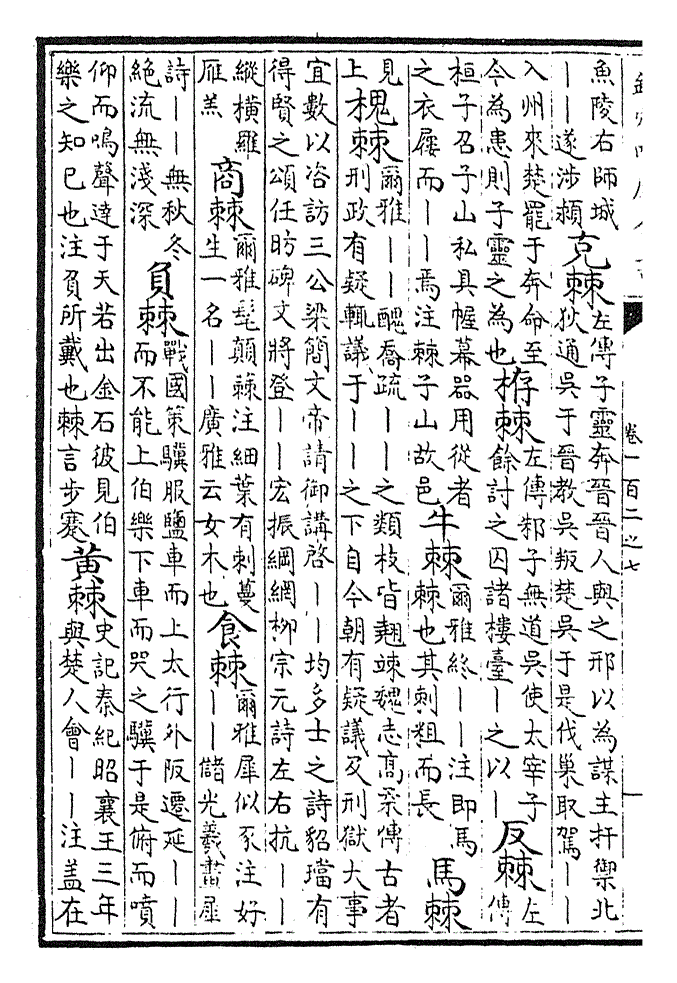 卷一百二之七
一
魚陵右師城
——遂涉潁
克棘
左傳子靈奔晉晉人與之邢以為謀主扞禦北
狄通吳于晉教吳叛楚吳于是伐巢取駕——
入州來楚罷于奔命至
今為患則子靈之為也
栫棘
左傳邾子無道吳使太宰子
餘討之囚諸樓臺—之以—
反棘
左
傳
桓子召子山私具幄幕器用從者
之衣屨而——焉注棘子山故邑
牛棘
爾雅終——注即馬
棘也其刺粗而長
馬棘
見
上
槐棘
爾雅——醜喬疏——之類枝皆翹竦魏志高柔傳古者
刑政有疑輒議于——之下自今朝有疑議及刑獄大事
宜數以咨訪三公梁簡文帝請御講啓——均多士之詩貂璫有
得賢之頌任昉碑文將登——宏振綱網柳宗元詩左右抗——
縱橫羅
雁羔
商棘
爾雅髦顛蕀注細葉有刺蔓
生一名——廣雅云女木也
食棘
爾雅犀似豕注好
——儲光羲畫犀
詩——無秋冬
絕流無淺深
負棘
戰國策驥服鹽車而上太行外阪遷延——
而不能上伯樂下車而哭之驥于是俯而噴
仰而鳴聲達于天若出金石彼見伯
樂之知己也注負所戴也棘言步蹇
黃棘
史記秦紀昭襄王三年
與楚人會——注蓋在